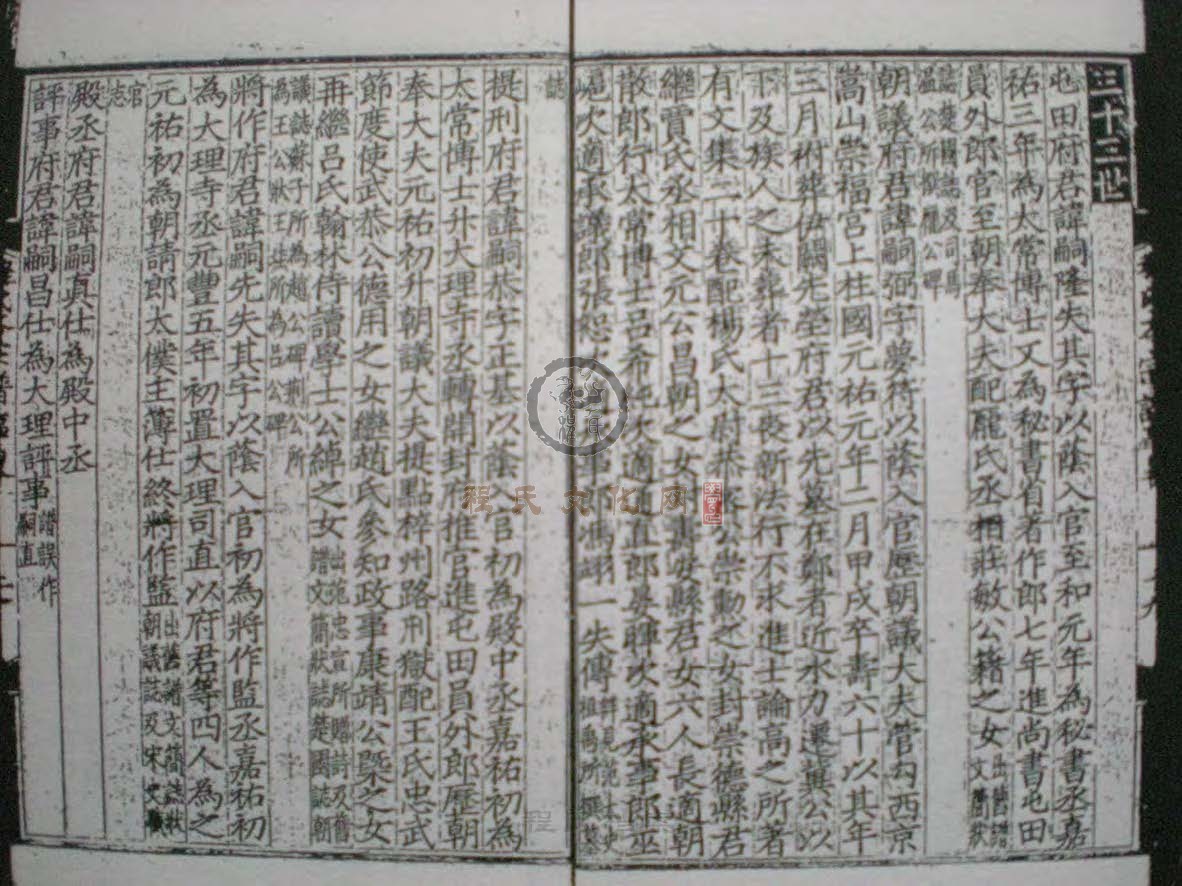 三十三世
屯田府君諱嗣隆失其字以蔭入官至和元年為秘書丞嘉
祐三年為太常博士又為秘書省著作郎七年進尚書屯田
員外郎官至朝奉大夫配龐氏丞相莊敏公籍之女出舊譜文簡狀
誌楚國誌及司馬溫公所撰龐公碑
朝議府君諱嗣弼字夢符以蔭入官歷朝議大夫管勾西京
嵩山崇福宮上柱國元祐元年二月甲戌卒壽六十以其年
三月祔葬伊闕先塋府君以先墓在鄭者近水力遷冀公以
下及族人之未葬者十三喪新法行不求進士論高之所著
有文集二十卷配楊氏大公崇勳之女封崇德縣君
繼賈氏丞相文元公昌朝之女壽安縣君女六人長適朝
散郎行太常博士呂希純次適通直郎晏暉次適承事郎巫
次適承議郎張恕事郎馮一失傳祖禹所撰墓
誌
提刑府君諱嗣恭字正基以蔭入官初為殿中丞嘉祐初為
太常博士升大理寺丞轉開封府推官進屯田員外郎歷朝
奉大夫元祐初升朝議大夫提點梓州路刑獄配王氏忠武
節度使武恭公德用之女繼趙氏參知政事康靖公槩之女
再繼呂氏翰林侍讀學士公綽之女出范忠宣所贈詩及舊譜文簡狀誌楚國誌朝
議誌蘇子所為趙公碑荊公所為王公狀王珪所為呂公碑
將作府君諱嗣先失其字以蔭入官初為將作監丞嘉祐初
為大理寺丞元豐五年初置大理司直以府君等四人為之
元祐初為朝請郎太僕主簿仕終將作監出舊譜文簡誌狀朝議誌及宋史職
官志
殿丞府君諱嗣真仕為殿中丞
評事府君諱嗣昌仕為大理評事譜誤作嗣直
程氏文化网